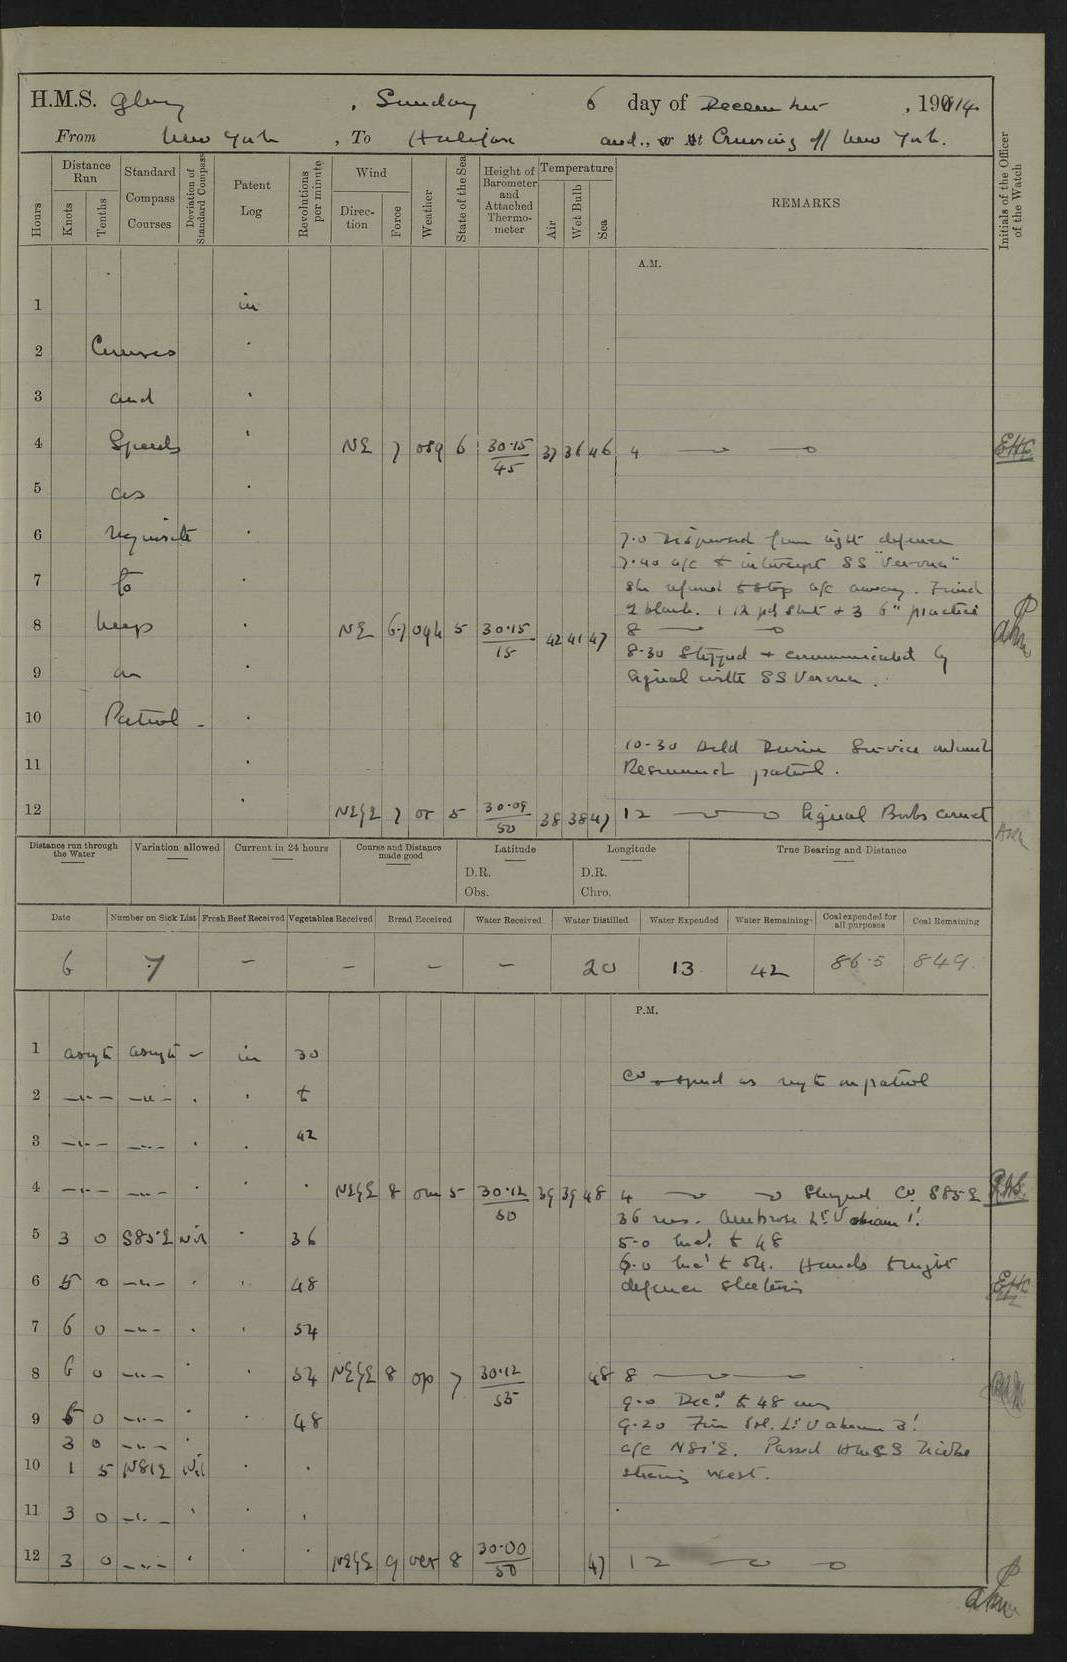 H.M.S. Glory, Sunday 6 day of December, 1914.
From New York, To Halifax and, or At Cruising off New York.
Hours
Distance Run
Knots
Tenths
Standard Compass Courses
Deviation of Standard Compass
Patent Log
Revolutions per minute
Wind
Direction
Force
Weather
State of the Sea
Height of Barometer and Attached Thermometer
Temperature
Air
Wet Bulb
Sea
REMARKS
Initials of the Officer of the Watch
A.M.
1 in
2 Courses
3 and
4 Speeds NE 7 osq 6 30.15/45 37 36 46 4
5 as
6 requisite
7.0 Dispersed from night defence
7.40 a/c to intercept SS "Verona"
7 to
She refused to stop a/c away. Fired
2 blank. 1 12 pd shot + 3 6" practice
8 keep NE 6-7 oqh 5 30.15/15 42 41 47 8
8.30 Stopped + communicated by
9 on
signal with SS Verona.
10 Patrol -
10-30 Held Divine Service
11
Resumed patrol.
12 NE by E 7 or 5 30.09/50 38 38 47 12 Signal Books correct
Distance run through the Water
Variation allowed
Current in 24 hours
Course and Distance made good
Latitude
D.R.
Obs.
Longitude
D.R.
Chro.
True Bearing and Distance
Date Number on Sick List Fresh Beef Received Vegetables Received Bread Received Water Received Water Distilled Water Expended Water Remaining Coal expended for all purposes Coal Remaining
6 7 - - - - 20 13 42 86.5 849
P.M.
1 as reqte as reqte - in 30
Co + speed as reqte on patrol
2 —"— —"— to
3 —"— —"— 42
4 —"— —"— 8 om 5 30.12/50 39 39 48 4 Co S85E
36 revs. Ambrose Lt V abeam 1'.
5 3 0 S85E Nil 36
5-0 Incd to 48
6.0 Incd to 54. Hands to night
6 5 0 —"— 48
defence stations
7 6 0 —"— 54
8 6 0 —"— 54 8 op 7 30.12/55 48 8
9.0 Decd to 48 revs
9 5 0 —"— 48
9.20 Fire Isd. Lt V abeam 3'
3 0 —"—
a/c N81°E. Passed HMCS Niobe
10 1 5 N81E Nil
steering West.
11 3 0 —"—
12 3 0 —"— 9 8 30.00/50 47 12